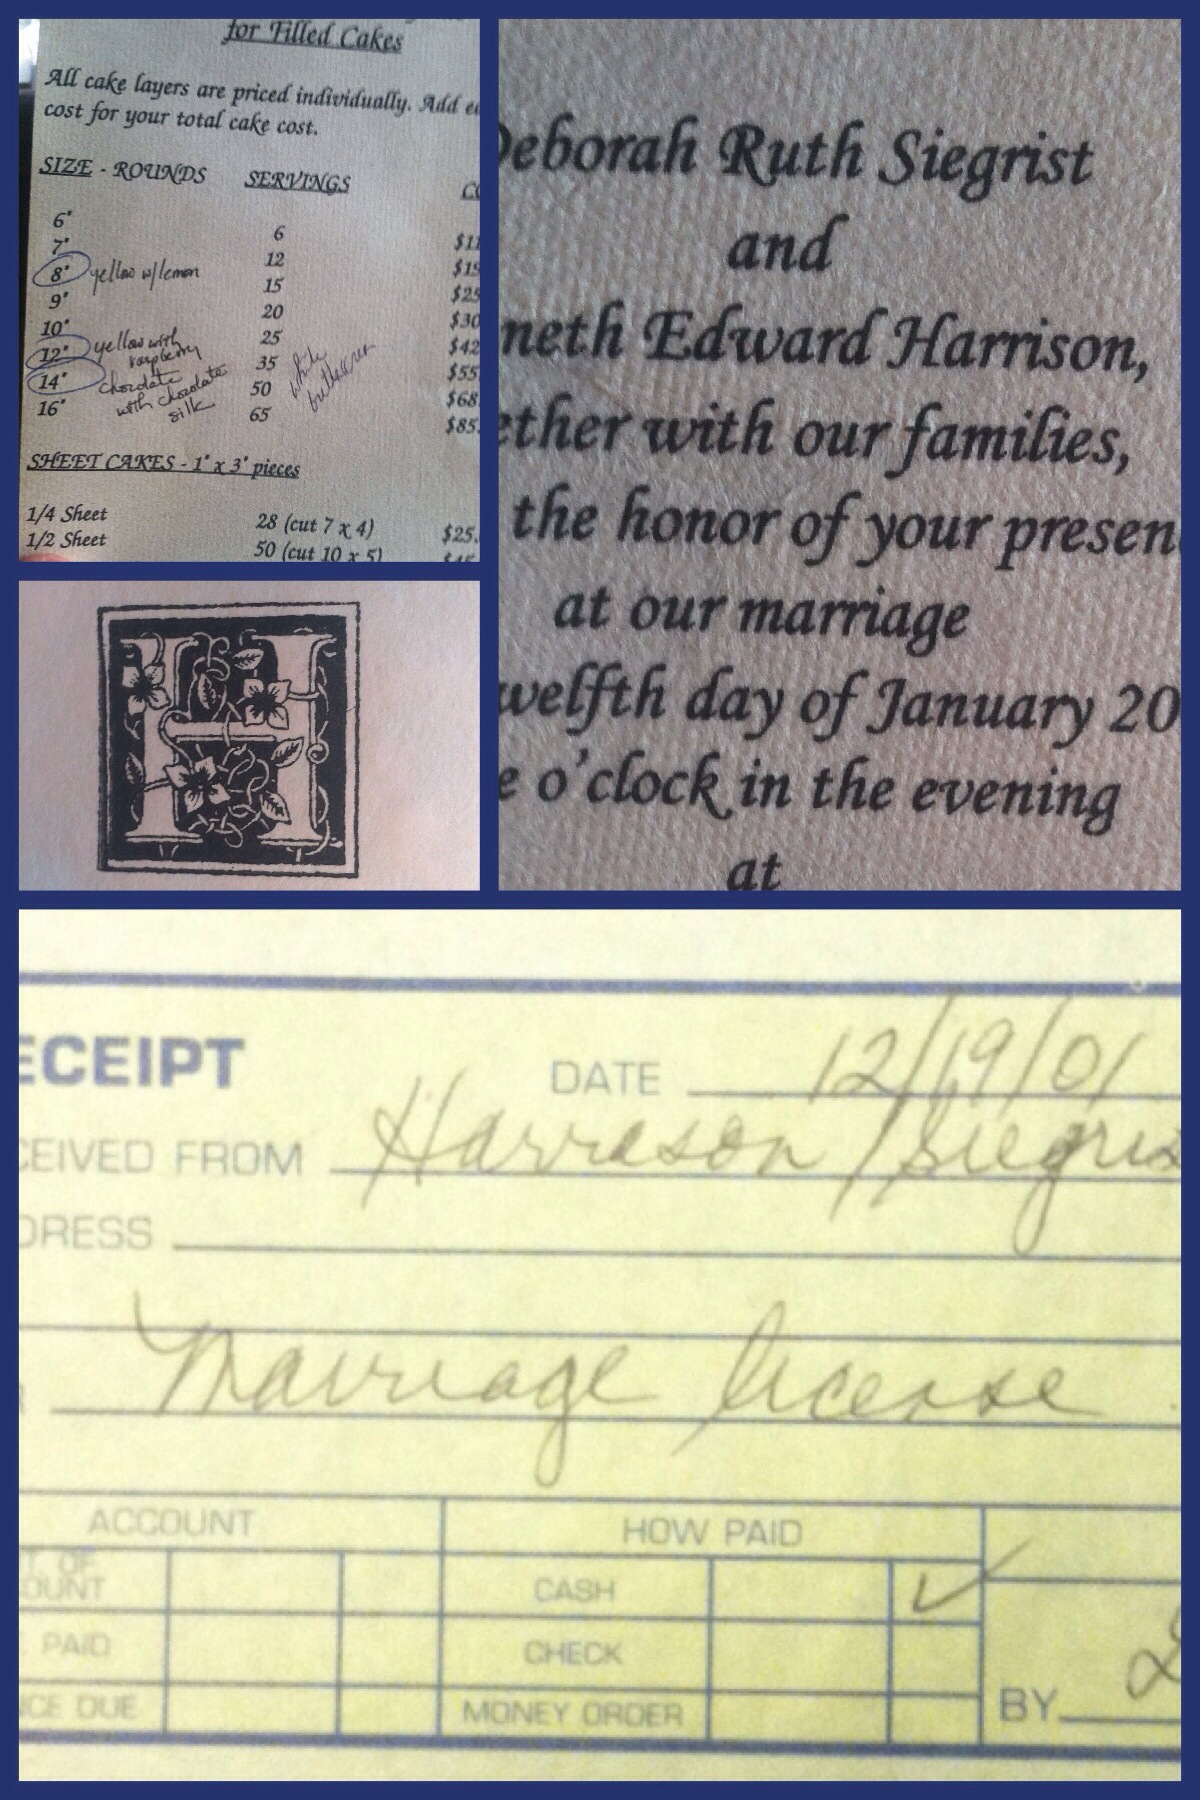 for Filled Cakes
All cake layers are priced individually. Add ea
cost for your total cake cost.
SIZE - ROUNDS SERVINGS CO
6" 6 $11
7" 12 $19
8" yellow w/lemon 15 $25
9" 20 $30
10" 25 $42
12" yellow with raspberry 35 $55
14" chocolate with chocolate silk 50 $68
16" 65 $85.
white buttercream
SHEET CAKES - 1" x 3" pieces
1/4 Sheet 28 (cut 7 x 4) $25.
1/2 Sheet 50 (cut 10 x 5) $45
H
Deborah Ruth Siegrist
and
neth Edward Harrison,
ether with our families,
the honor of your presen
at our marriage
welfth day of January 20
e o'clock in the evening
at
ECEIPT DATE 12/19/01
CEIVED FROM Harrison / Siegris
DRESS
Marriage license
ACCOUNT HOW PAID
T. OF
OUNT CASH ✓
PAID CHECK
CE DUE MONEY ORDER BY